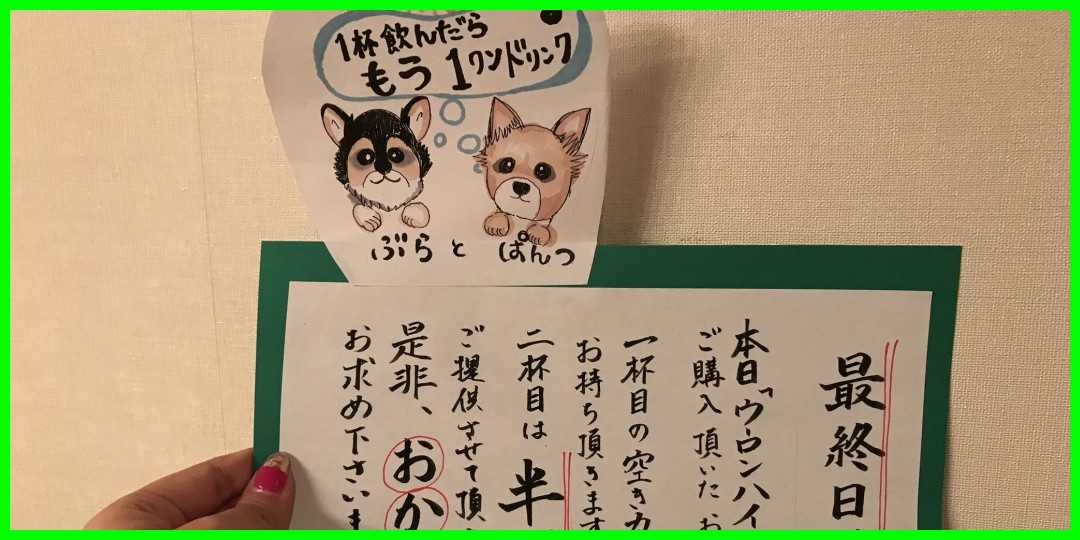 1杯飲んだら
もう1ワンドリンク
ぶらと ぱんつ
最終日
本日「ウーロンハイ
ご購入頂いた お
一杯目の空きカ
お持ち頂きます
二杯目は 半
ご提供させて頂
是非、おか
お求め下さいま